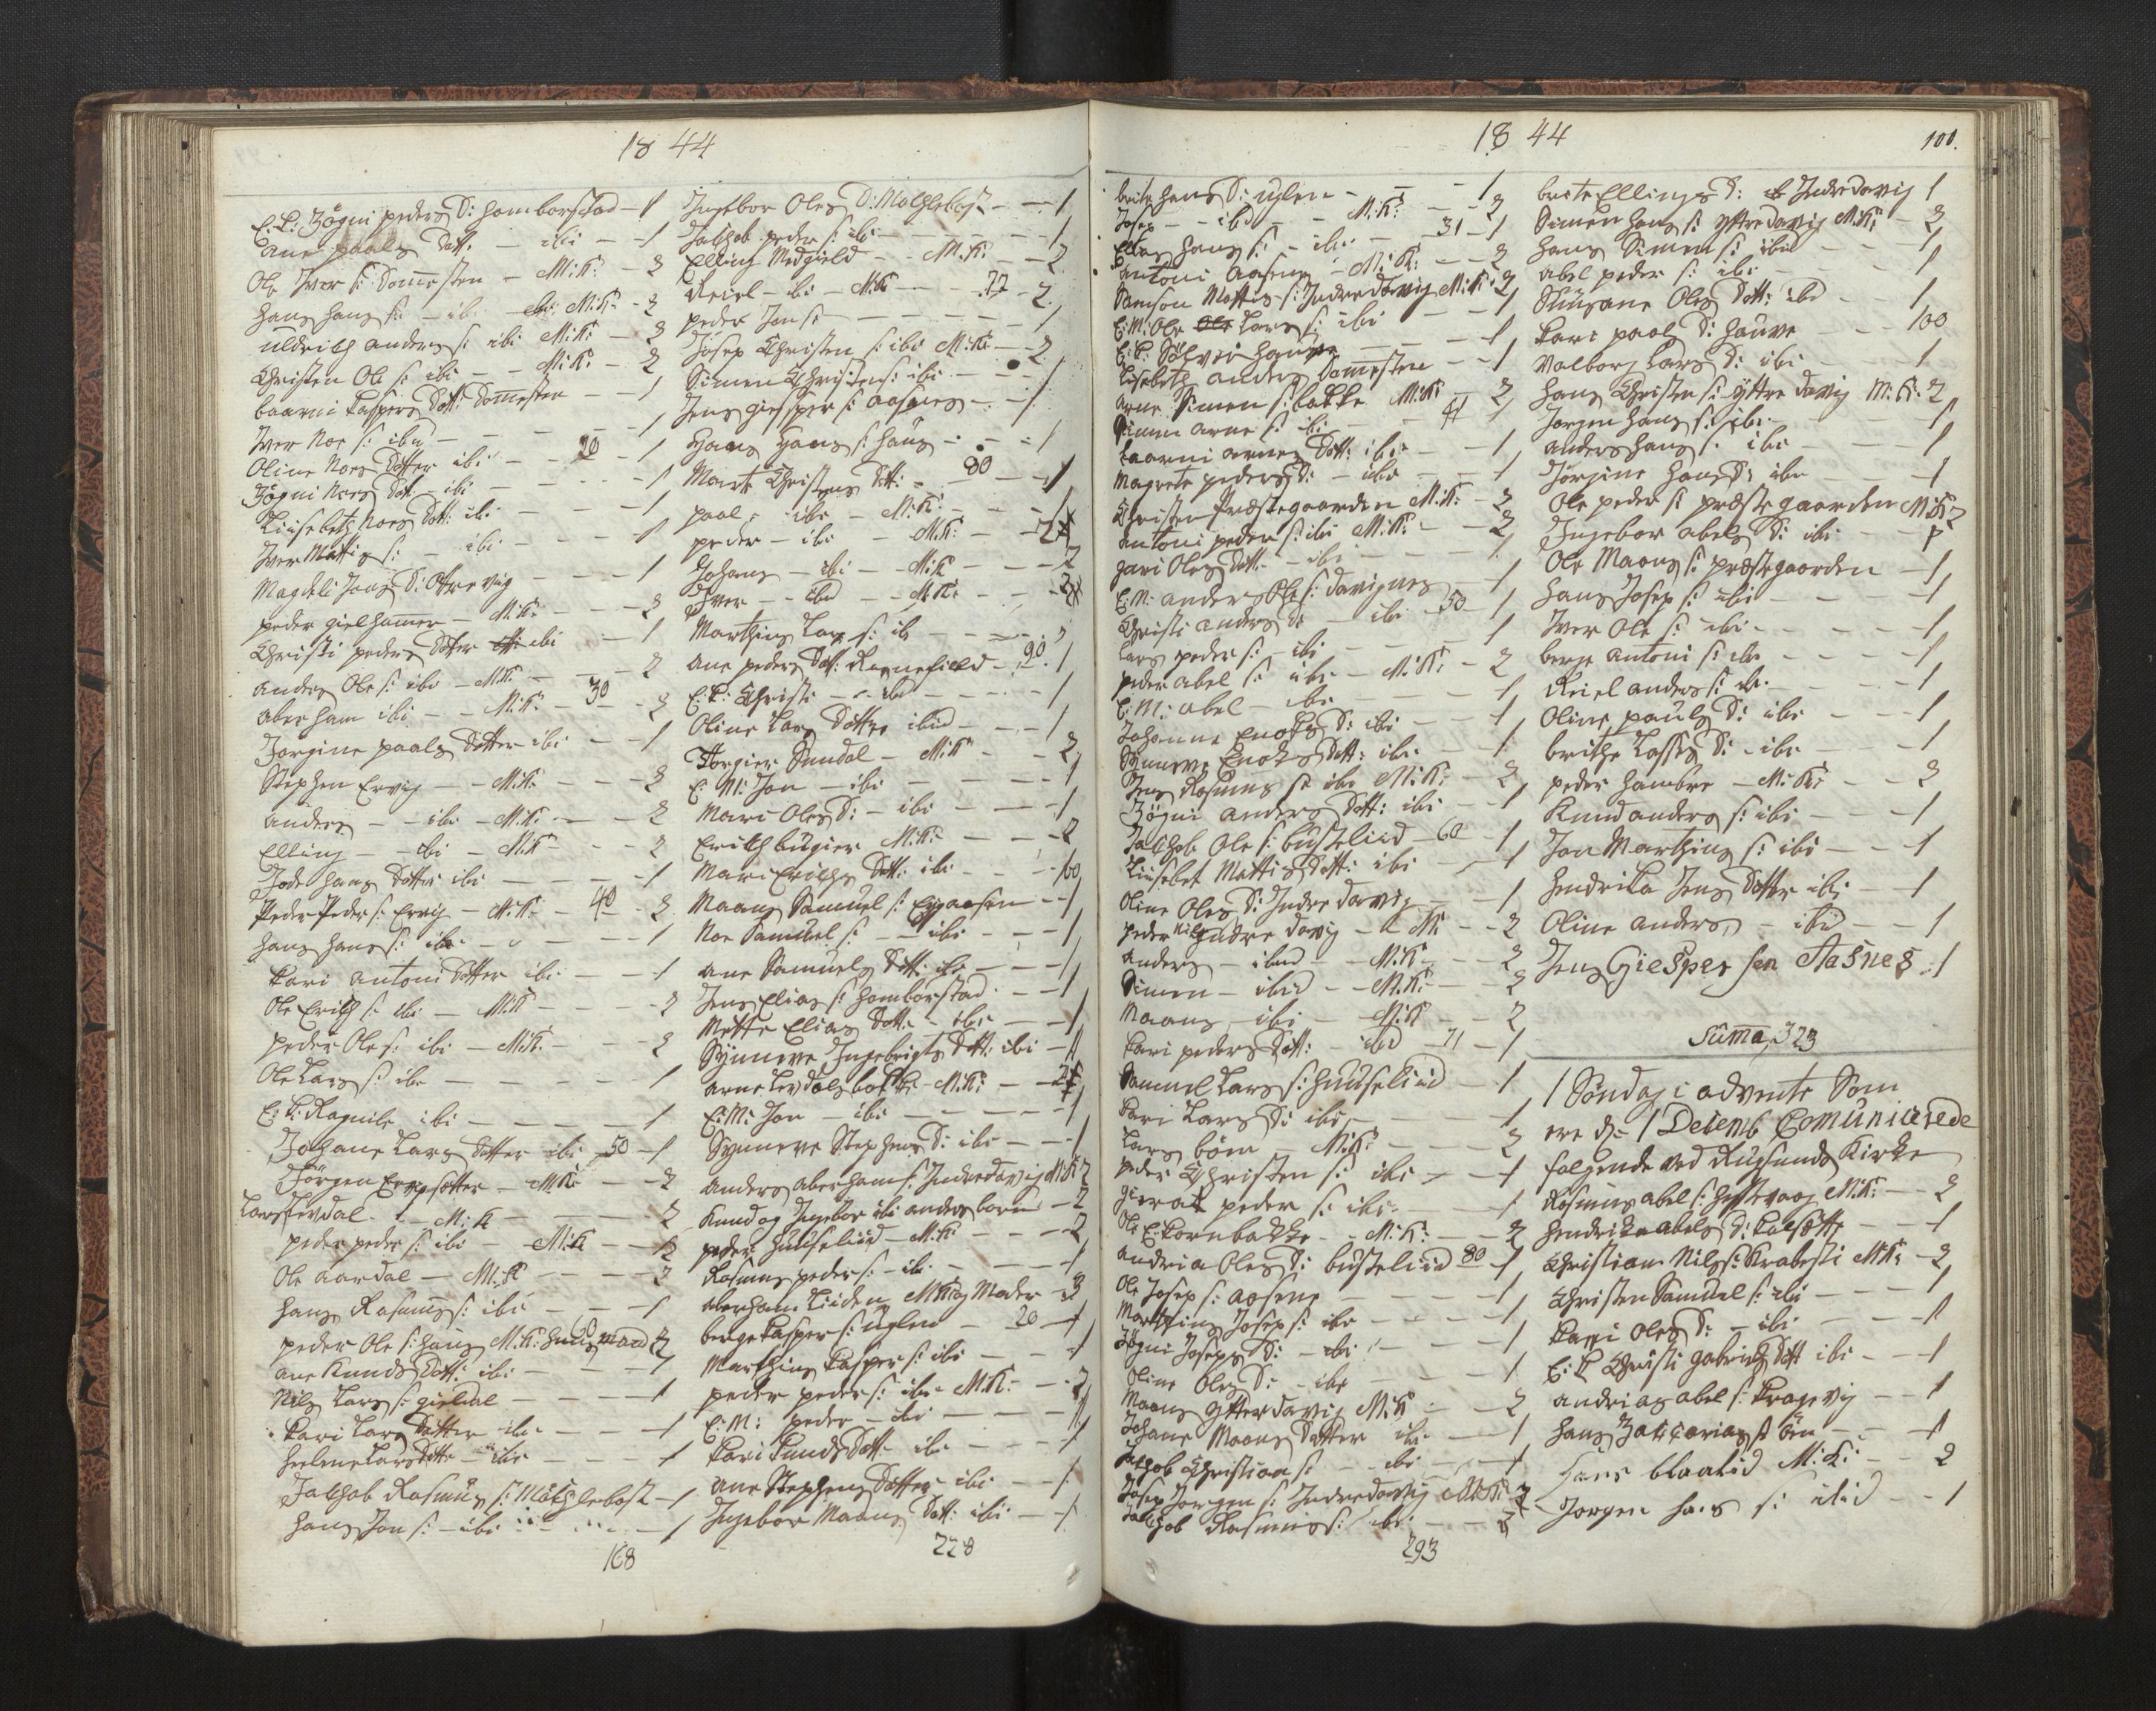 1844
E: K: Zögni peders D: Hamborstad - 1
ane paals Datt: - ibi - - 1
Ole Iver s: Domesten - M: K: - 2
Hans Hans s: - ibi M: K: - 2
Uldrich anders s: ibi M: K: - 2
Christen Ole s: ibi - - M: K: - 2
baarni Caspers Datt: Domesten - - 1
Iver Noe s: ibid - - - 1
Oline Noes Datter ibi - - 20 - 1
Zögni Noes Datt: ibi - - - 1
Liisebeth Noes Datt: ibi - - - 1
Iver Mattis s: - ibi - - - 1
Magdeli Jons D: Otrevig - - - 1
peder gielhamer - M: K: - - - 2
Christi peders Datter ibi - - 1
Anders Ole s: ibi - M: K: - - - 2
Aberham ibi - - M: K: - 30 - - 2
Jorgine paals Datter ibi - - - 1
Stephen Ervig - - M: K: - - - 2
anders - - ibi - M: K: - - - 2
Elling - - ibi - M: K: - - 2
Jode Hans Datter ibi - - - - 1
Peder Peder s: Ervig - M: K: - 40 - 2
Hans Hans s: ibi - - - - 1
Kari Antoni Datter ibi - - - 1
Ole Erich s: ibi - M: K: - - - 2
peder Ole s: ibi - M: K: - - - 2
Ole Lars s: ibi - - - - 1
E: K: Ragnile ibi - - - - 1
Johane Lars Datter ibi 50 - 1
Jörgen Ervigsötter - M: K: - - 2
Lars Levdal - M: K: - - - 2
peder peder s: ibi - M: K: - - 2
Ole Aardal - M: K: - - - 2
Hans Rasmus s: ibi - - - 1
peder Ole s: Haus M: K: Huusmand 60 2
ane Knuds Datt: ibi - - - 1
Nils Lars s: gieldal - - - 1
Kari Lars Datter ibi - - - 1
Helene Lars Datter - ibi - - - 1
Jakhob Rasmus s: Mölhlebost - 1
Hans Jon s: - ibi - - - 1
168
Ingebor Oles D: Molhlebost - - 1
Jakhob peder s: ibi - - - - 1
Elling Medgield - - M: K: - - 2
Reiel - ibi - M: K: - - 77 - 2
peder Jon s: - - - - 1
Josep Christen s: ibi M: K: - - 2
Simen Christen s: ibi - - - 1
Jens giesper s: Aasnes - - 1
Hans Hans s: Haus - - - 1
Marte Christens Datt: - 80 - - 1
paal - ibi - M: K: - - - 1
peder - ibi - M: K: - - 2
Johans - ibi - M: K: - - - 2
Iver - - ibid - - M: K: - - - 2
Marthins Lars s: ib - - - -
ane peders Datt: Ravnefield - 90 1
E: K: Christi - - ibid - - - - 1
Oline Lars Datter ibid - - - 1
Torgier Sundal - M: K: - - 2
E: M: Jon - ibi - - - - 1
Mari Oles D: - ibi - - - 1
Erich bugier M: K: - - - 2
Mari Erichs Datt: ibi - - - 100
Maans Samuel s: Eyaasen - - 1
Noe Samuel s: - - ibi - - - 1
ane Samuels Datt: ibi - - - 1
Jens Elias s: Hamborstad - - 1
Mette Elias Datt: - ibi - - 1
Synneve Ingebrigts Datt: ibi - 1
arne Levdalsbakke - M: K: - - 2
E: M: Jon - ibi - - - - - 1
Synneve Stephens D: ibi - - - 1
anders aberham s: Indredavig M: K: 2
Knud og Ingebor ibi anders born - 2
peder Huuseliid - M: K: - - - 2
Rasmus peder s: - ibi - - - - 1
aberham Liiden M: K: og Moder - 3
berge Casper s: uglen - 20 - 1
Marthins Casper s: ibi - - 1
peder peder s: ibi - M: K: - - 2
E: M: peder - ibi - - - - 1
Kari Knuds Datt: ibi - - - 1
ane Stephens Datter ibi - - 1
Ingebor Maans Datt: ibi - - 1
228
1844
100.
brite Hans D: uglen - - - 1
Josep - ibid - - M: K: - - 2
Elias Hans s: - ibi - - 31 - 1
Antoni Aasene - M: K: - - 2
Samson Mattis s: Indredavig M: K: 2
E: M: Ole Lars s: ibi - - - 1
E: K: Sölvei Hauge - - - 1
Lisebeth anders Domesten - - 1
Arne Simen s: bakke M: K: - 2
Simen Arne s: ibi - - 41 - 1
baarni arnes Datt: ibi - - 1
Magrete peders D: - ibi - - 1
Christen Præstegaarden M: K: - 2
Antoni peder s: ibi M: K: - - 2
gari Oles Datt: - ibi - - - 1
E: M: anders Ole s: Davignes - 1
Christi anders D: - ibi - 50 - 1
Lars peder s: - ibi - - - 1
peder abel s: ibi - M: K: - 2
E: M: abel - ibi - - - 1
Johanne Enoks D: ibi - - 1
Synneve Enoks Datt: ibi - - 1
Jens Rasmus s: ibi M: K: - 2
Zögni anders Datt: ibi - - 1
Jakhob Ole s: Busteliid - 60 - 1
Liisebet Mattis Datt: ibi - - 1
Oline Oles D: Indredavig - - 1
peder Nils Indredavig - M: K: - - 2
anders - ibid - - M: K: - - 2
Simen - ibid - - M: K: - - 2
Maans - ibi - M: K: - - 2
Kari peders Datt: - ibid - 71 - 1
Samuel Lars s: Huuseliid - - 1
Kari Lars D: ibi - - - 1
Lars böen M: K: - - - 2
peder Christen s: ibi - - 1
gierat peder s: ibi - - - 1
Ole E: Kornbakke - - M: K: - - 2
Andria Oles D: Busteliid 80 - 1
Ole Josep s: Aasene - - - 1
Marthins Josep s: ibi - - - 1
Zögni Joseps D: - ibi - - - 1
Oline Oles D: - ibi - - - 1
Maans Ytterdavig M: K: - - 2
Johane Maans Datter ibi - - 1
Jakhob Christian s: - ibi - - - 1
Josep Jorgen s: Indredavig M: K: 2
Jakhob Rasmus s: ibi - - -
293
brite Ellings D: Indredavig 1
Simen Hans s: Yttredavig M: K: - 2
Hans Simen s: ibid - - - 1
Abel peder s: ibi - - - 1
Susane Oles Datt: ibid - 1
Kari paals D: Hauve - - - 100
Valborg Lars D: ibi - - - 1
Hans Christen s: Yttredavig M: K: 2
Jorgen Hans s: ibi - - - 1
anders Hans s: ibi - - - 1
Jorgine Hans D: ibi - - - 1
Ole peder s: præstegaarden M: K: 2
Ingebor abels D: ibi - - 1
Ole Maans s: præstegaarden - 1
Hans Josep s: ibi - - - 1
Iver Ole s: ibi - - - - 1
berge Antoni s: ibi - - - - 1
Reiel anders s: ibi - - - 1
Oline pauls D: ibi - - - 1
brithe Lasses D: - ibi - - - 1
peder Hambre - M: K: - - 2
Knud anders s: ibi - - - 1
Jon Marthins s: ibi - - - 1
Hendrika Jens Datter ibi - - 1
Oline anders - ibid - - 1
Jens Giesper sen Aasnes - 1
Suma, 323
1 Söndag i advente Som
ere D: 1 Desemb, Comunicerede
folgende ved Rugsunds Kirke
Rasmus abel s: Hestevaag M: K: - - 2
Hendrika abels D: Kalsötte - - 1
Christian Nils s: Krabesti M: K: - 2
Christen Samuel s: ibi - - - 1
Kari Oles D: - ibi - - - 1
E: K: Christi gabriels Datt ibi - - 1
andrias abel s: Kragevig - - 1
Hans Zaccarias s: öen - - - 1
Hans blaalid M: K: - - 2
Jorgen Hans s: ibid - - 1